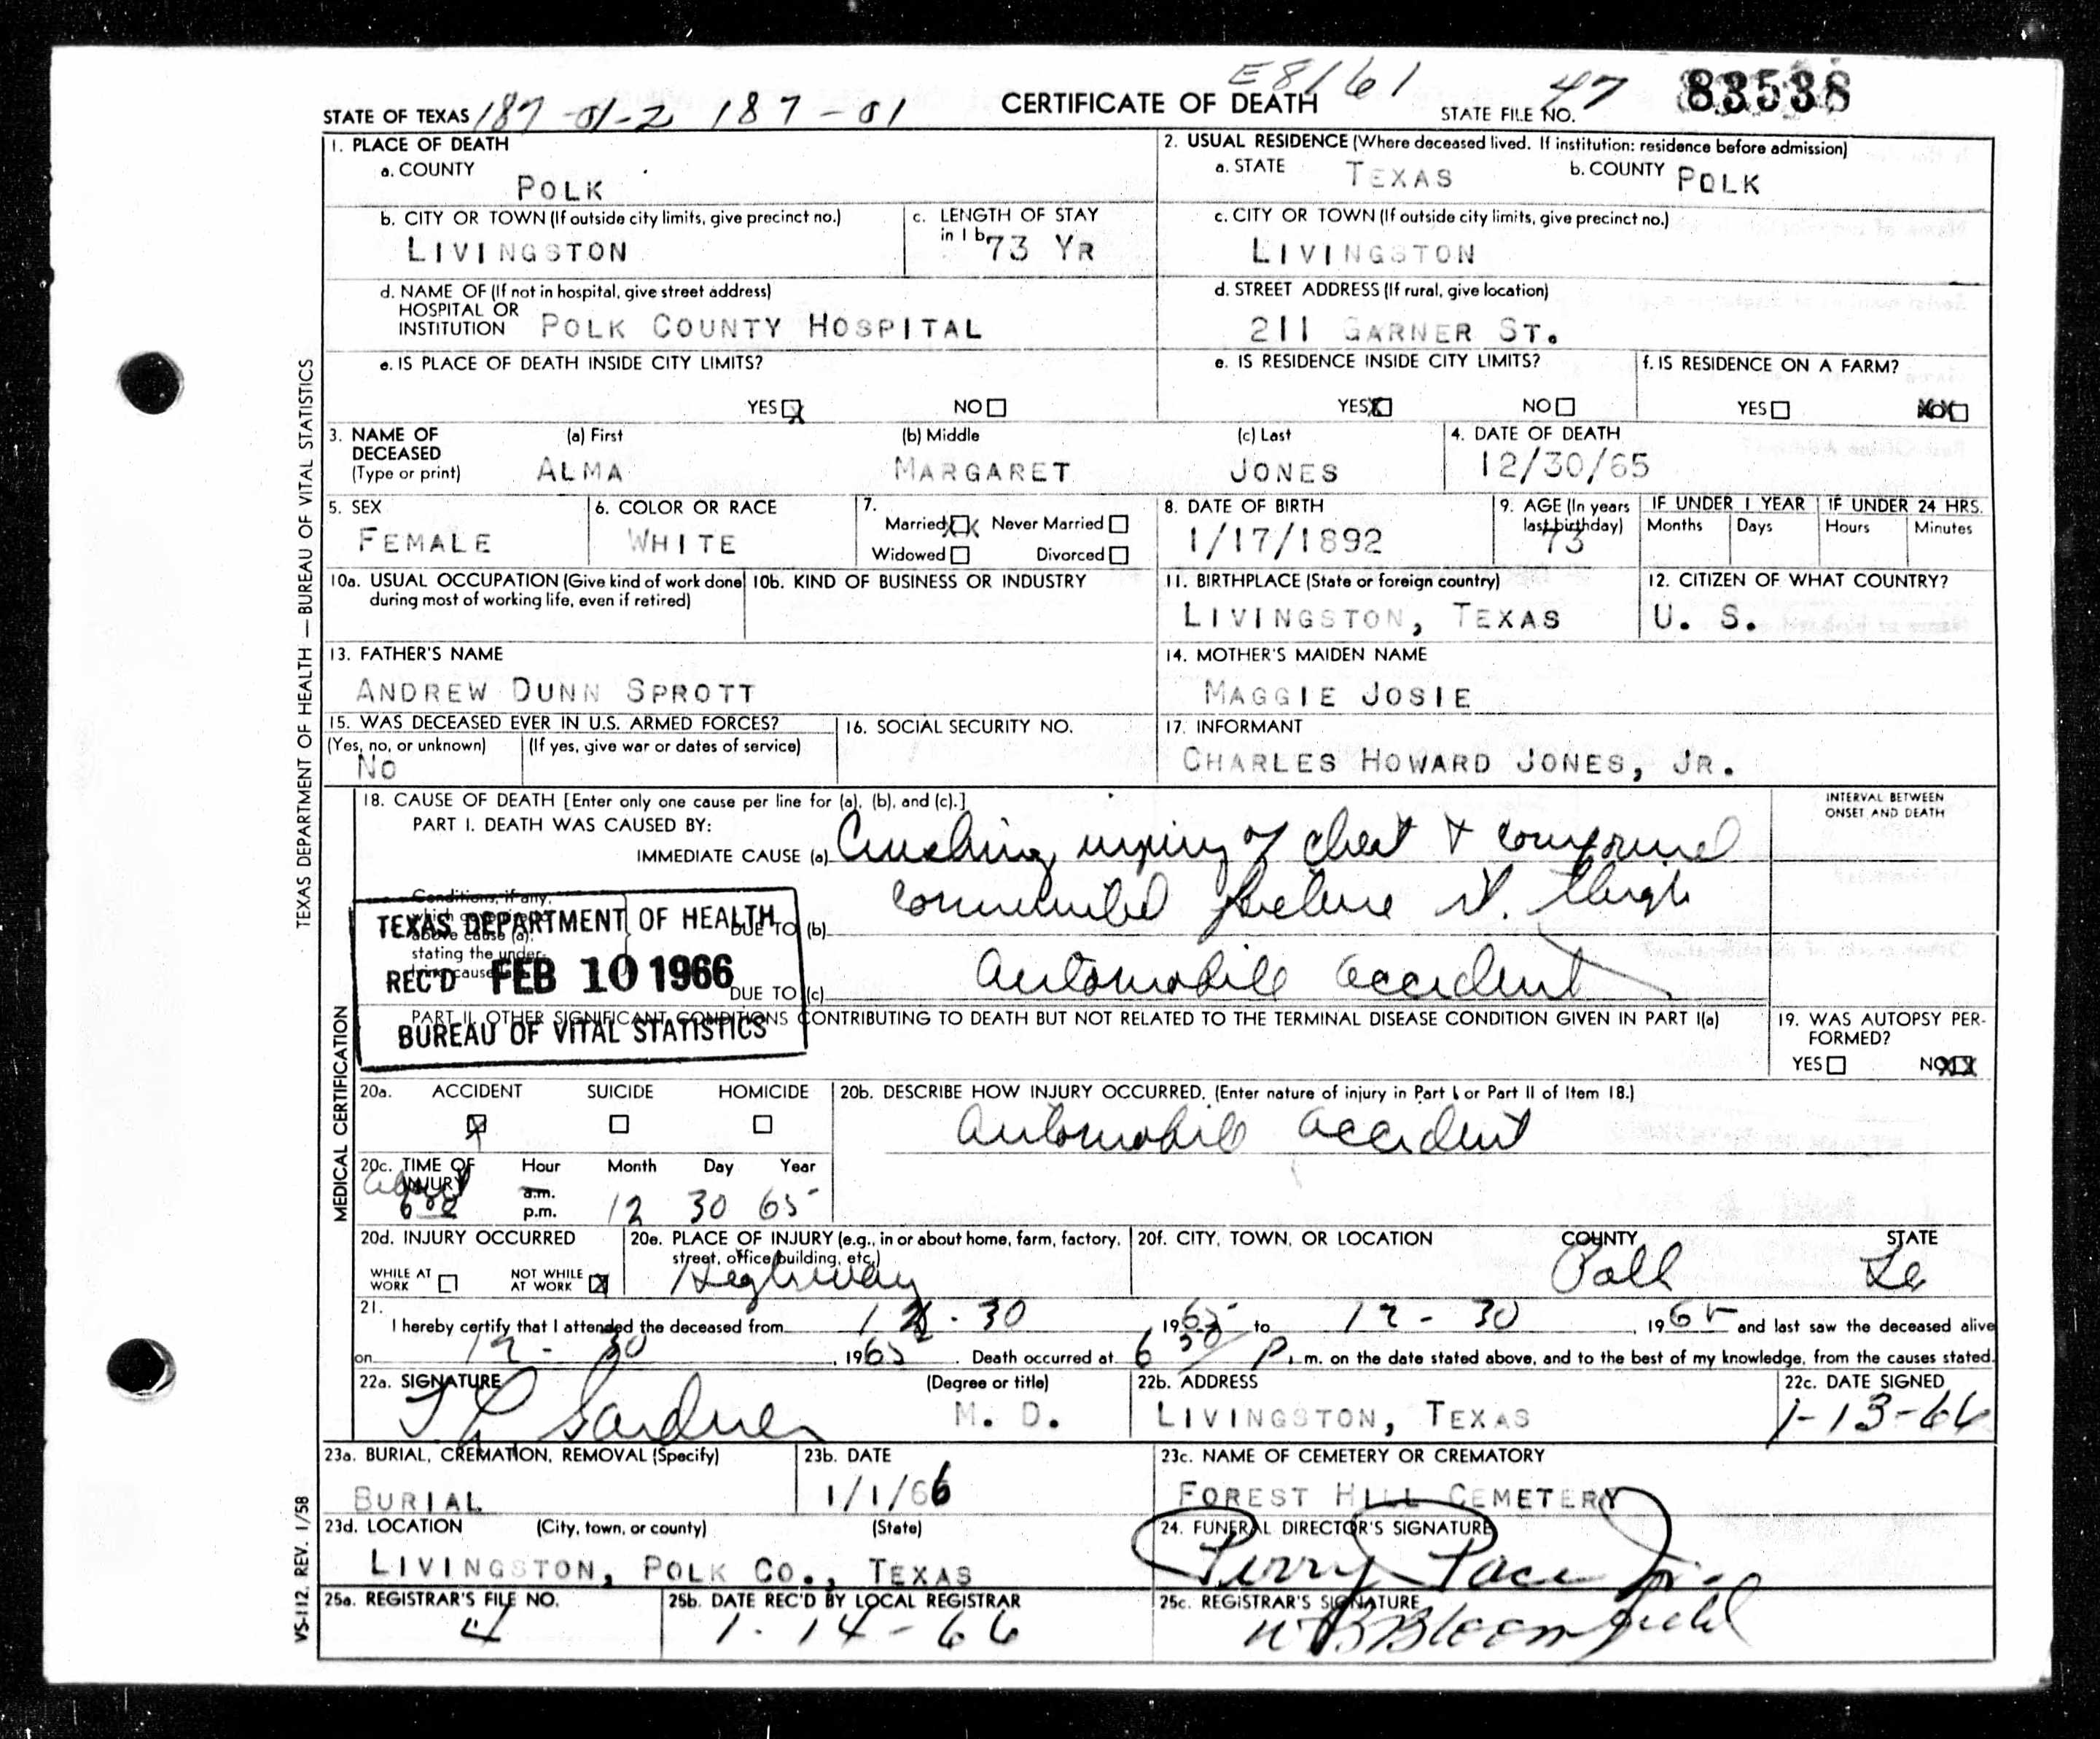 E8161
STATE OF TEXAS 187-01-2 187-01 CERTIFICATE OF DEATH STATE FILE NO. 47 83538
1. PLACE OF DEATH
a. COUNTY
POLK
2. USUAL RESIDENCE (Where deceased lived. If institution: residence before admission)
a. STATE TEXAS b. COUNTY POLK
b. CITY OR TOWN (If outside city limits, give precinct no.)
LIVINGSTON
c. LENGTH OF STAY
in 1 b. 73 YR
c. CITY OR TOWN (If outside city limits, give precinct no.)
LIVINGSTON
d. NAME OF (If not in hospital, give street address)
HOSPITAL OR
INSTITUTION POLK COUNTY HOSPITAL
d. STREET ADDRESS (If rural, give location)
211 GARNER ST.
e. IS PLACE OF DEATH INSIDE CITY LIMITS?
YES X NO
e. IS RESIDENCE INSIDE CITY LIMITS?
YES X NO
f. IS RESIDENCE ON A FARM?
YES NO XX
3. NAME OF
DECEASED
(Type or print)
(a) First (b) Middle (c) Last
ALMA MARGARET JONES
4. DATE OF DEATH
12/30/65
5. SEX
FEMALE
6. COLOR OR RACE
WHITE
7.
Married XX Never Married
Widowed Divorced
8. DATE OF BIRTH
1/17/1892
9. AGE (In years
last birthday)
73
IF UNDER 1 YEAR IF UNDER 24 HRS.
Months Days Hours Minutes
10a. USUAL OCCUPATION (Give kind of work done
during most of working life, even if retired)
10b. KIND OF BUSINESS OR INDUSTRY
11. BIRTHPLACE (State or foreign country)
LIVINGSTON, TEXAS
12. CITIZEN OF WHAT COUNTRY?
U. S.
13. FATHER'S NAME
ANDREW DUNN SPROTT
14. MOTHER'S MAIDEN NAME
MAGGIE JOSIE
15. WAS DECEASED EVER IN U.S. ARMED FORCES?
(Yes, no, or unknown) (If yes, give war or dates of service)
NO
16. SOCIAL SECURITY NO.
17. INFORMANT
CHARLES HOWARD JONES, JR.
18. CAUSE OF DEATH [Enter only one cause per line for (a), (b), and (c).]
PART I. DEATH WAS CAUSED BY:
IMMEDIATE CAUSE (a) Crushing injury of chest & compound
comminuted fracture rt. thigh
INTERVAL BETWEEN
ONSET AND DEATH
Conditions, if any,
which
above cause (a),
stating the under-
lying cause
DUE TO (b)
DUE TO (c) Automobile accident
TEXAS DEPARTMENT OF HEALTH
REC'D FEB 10 1966
BUREAU OF VITAL STATISTICS
PART II. OTHER SIGNIFICANT CONDITIONS CONTRIBUTING TO DEATH BUT NOT RELATED TO THE TERMINAL DISEASE CONDITION GIVEN IN PART I(a)
19. WAS AUTOPSY PER-
FORMED?
YES NO XX
20a. ACCIDENT SUICIDE HOMICIDE
X
20b. DESCRIBE HOW INJURY OCCURRED. (Enter nature of injury in Part I or Part II of Item 18.)
Automobile accident
20c. TIME OF
INJURY
Hour Month Day Year
about
6:00 a.m.
p.m. 12 30 65
20d. INJURY OCCURRED
WHILE AT
WORK
NOT WHILE
AT WORK X
20e. PLACE OF INJURY (e.g., in or about home, farm, factory,
street, office building, etc.)
Highway
20f. CITY, TOWN, OR LOCATION COUNTY STATE
Polk Te
21.
I hereby certify that I attended the deceased from 12-30 1965 to 12-30, 1965 and last saw the deceased alive
on 12-30, 1965. Death occurred at 6 30 P.m. on the date stated above, and to the best of my knowledge, from the causes stated.
22a. SIGNATURE (Degree or title)
T L Gardner M. D.
22b. ADDRESS
LIVINGSTON, TEXAS
22c. DATE SIGNED
1-13-66
23a. BURIAL, CREMATION, REMOVAL (Specify)
BURIAL
23b. DATE
1/1/66
23c. NAME OF CEMETERY OR CREMATORY
FOREST HILL CEMETERY
23d. LOCATION (City, town, or county) (State)
LIVINGSTON, POLK CO., TEXAS
24. FUNERAL DIRECTOR'S SIGNATURE
Perry Pace Jr.
25a. REGISTRAR'S FILE NO.
4
25b. DATE REC'D BY LOCAL REGISTRAR
1-14-66
25c. REGISTRAR'S SIGNATURE
W B Bloomfield
TEXAS DEPARTMENT OF HEALTH — BUREAU OF VITAL STATISTICS
MEDICAL CERTIFICATION
VS-112, REV. 1/58